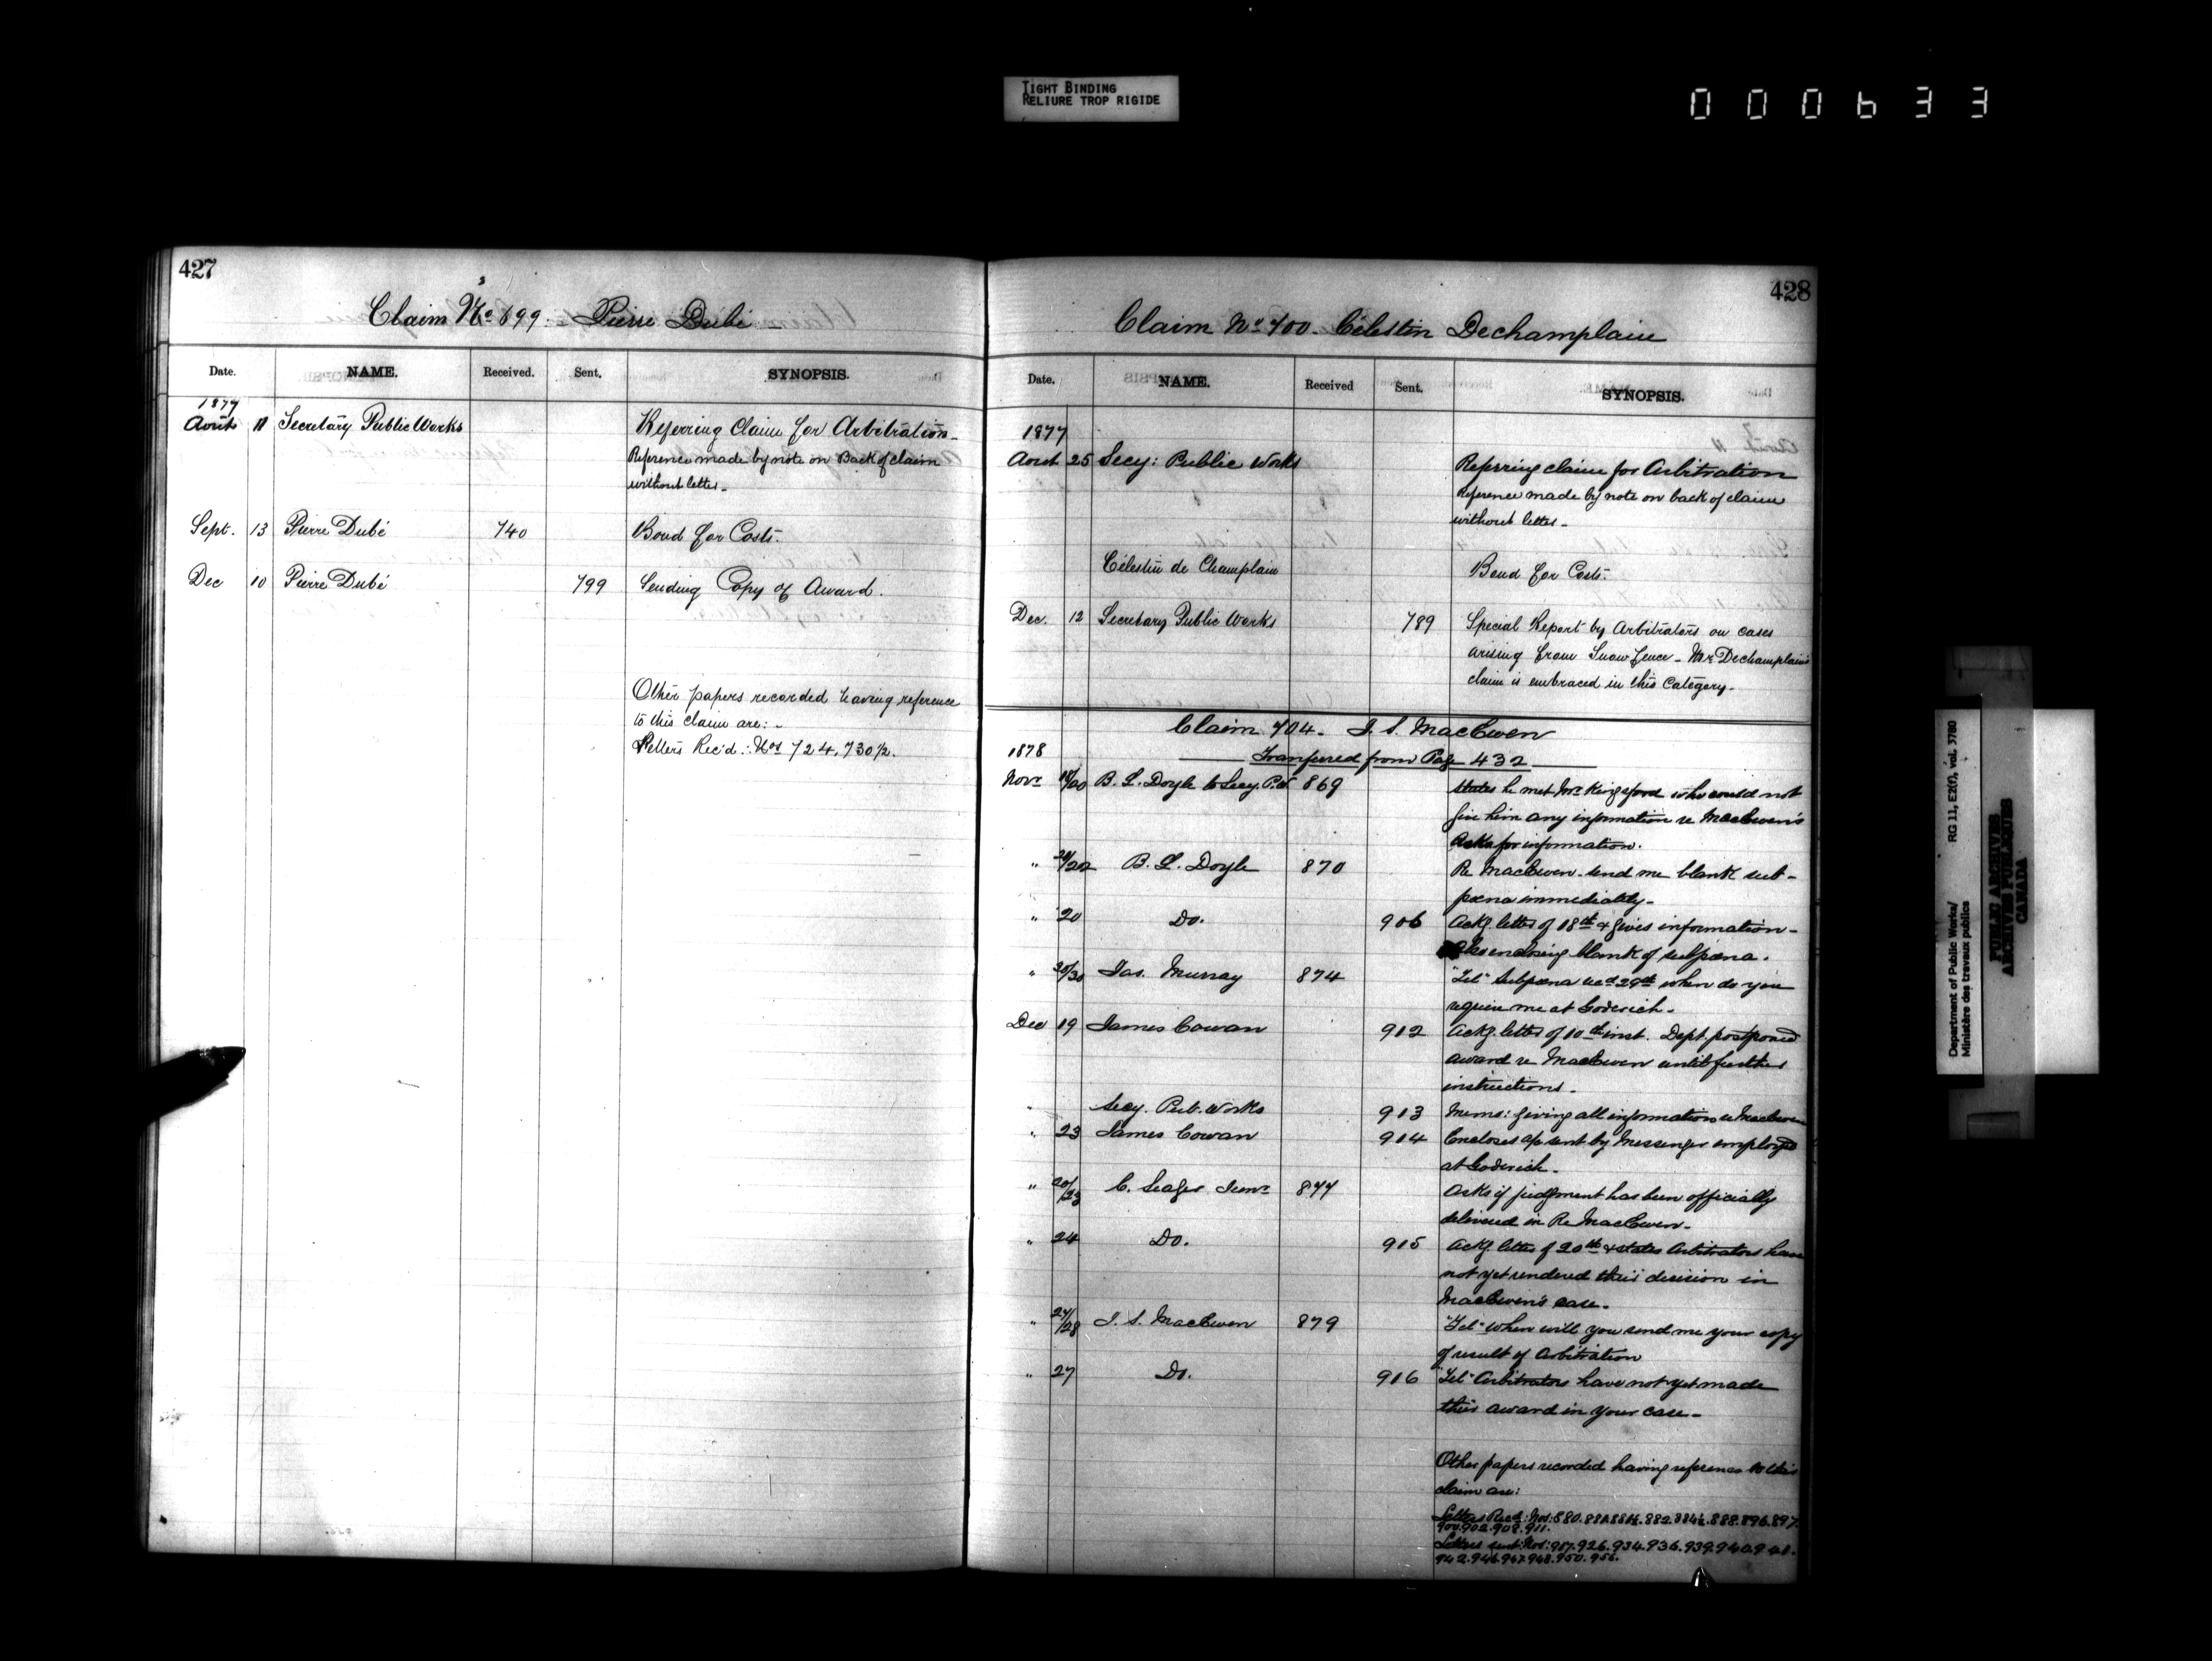 TIGHT BINDING
RELIURE TROP RIGIDE
000633
427
Claim No 699. Pierre Dubé
Date. NAME. Received. Sent. SYNOPSIS.
1877
Août 11 Secretary Public Works Referring Claim for Arbitration_
Reference made by note on Back of claim
without letter_
Sept. 13 Pierre Dubé 740 Bond for Costs.
Dec 10 Pierre Dubé 799 Sending Copy of Award.
Other papers recorded having reference
to this claim are:-
Letters Rec'd: Nos 724, 730½.
428
Claim No 700. Célestin Dechamplain
Date. NAME. Received Sent. SYNOPSIS.
1877
Aout 25 Secy: Public Works Referring claim for Arbitration
Reference made by note on back of claim
without letter_
Célestin de Champlain Bond for Costs.
Dec. 12 Secretary Public Works 789 Special Report by Arbitrators on cases
arising from Snow fence - Mr Dechamplain's
claim is embraced in this Category.
Claim 704. J. S. MacEwen
Tranferred from Page 432
1878
Novr 18/20 B. L. Doyle to Secy. P.W. 869 States he met Mr Kingsford who could not
give him any information re MacEwen's
Asks for information.
" 20/22 B. L. Doyle 870 Re MacEwen - send me blank sub-
pœna immediately-
" 20 Do. 906 Ackg letter of 18th & gives information-
also enclosing blank of subpœna.
" 30/30 Jas. Murray 874 "Tel" Subpœna recd 29th when do you
require me at Goderich.
Dec 19 James Cowan 912 Ackg letter of 10th inst. Dept. postponed
award re MacEwen until further
instructions.
" Secy. Pub. Works 913 Memo: giving all information re MacEwen
" 23 James Cowan 914 Encloses a/c sent by Messenger employed
at Goderich.
" 20/23 C. Seager Junr 877 Asks if judgment has been officially
delivered in Re MacEwen.
" 24 Do. 915 Ackg letter of 20th & states Arbitrators have
not yet rendered their decision in
MacEwen's case.
" 27/28 J. S. MacEwen 879 "Tel" When will you send me your copy
of result of Arbitration
" 27 Do. 916 "Tel" Arbitrators have not yet made
their award in your case-
Other papers recorded having reference to this
claim are:
Letters Recd: Nos: 880. 882. 888. 896. 897.
900. 902. 908. 911.
Letters sent: Nos: 917. 926. 934. 936. 939. 940. 941.
942. 946. 947. 948. 950. 956.
Department of Public Works/ RG 11, E2(f), vol. 3780
Ministère des travaux publics
PUBLIC ARCHIVES
ARCHIVES PUBLIQUES
CANADA